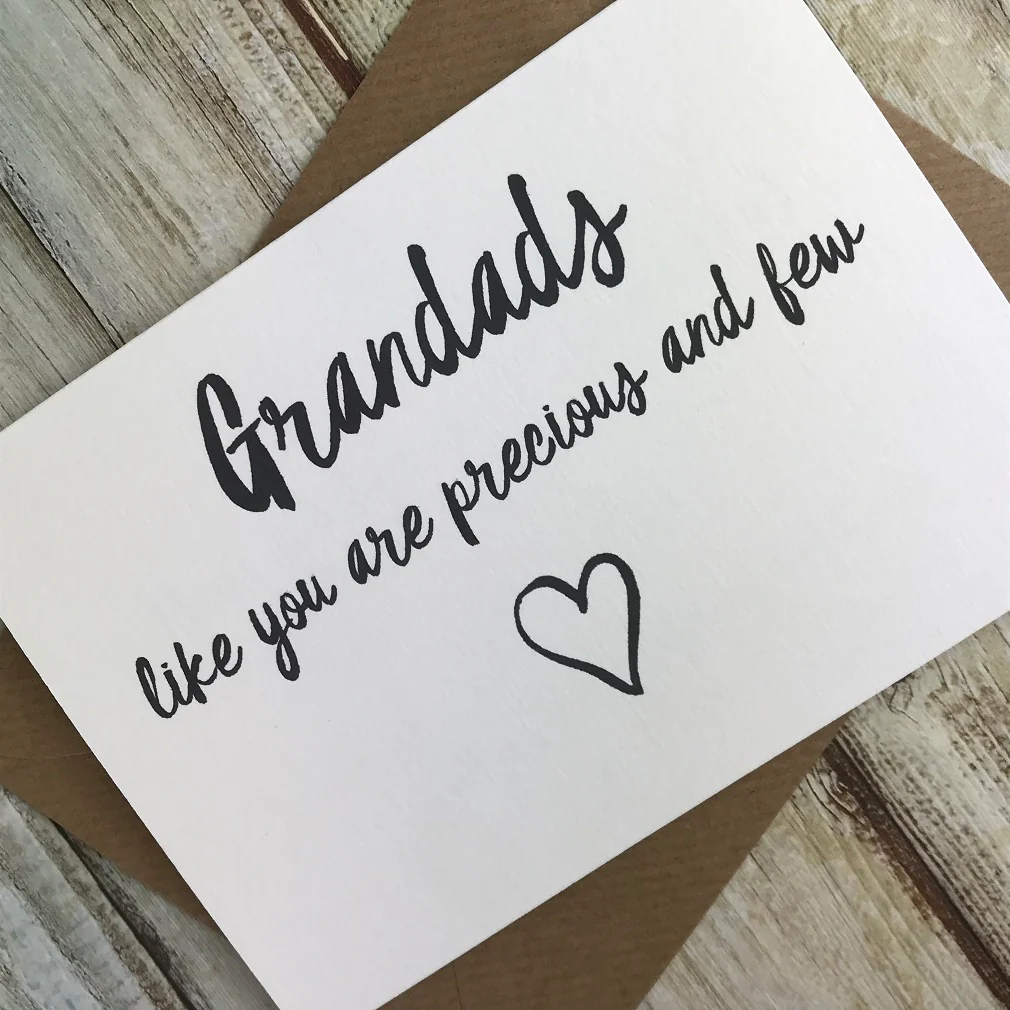 Grandads
like you are precious and few